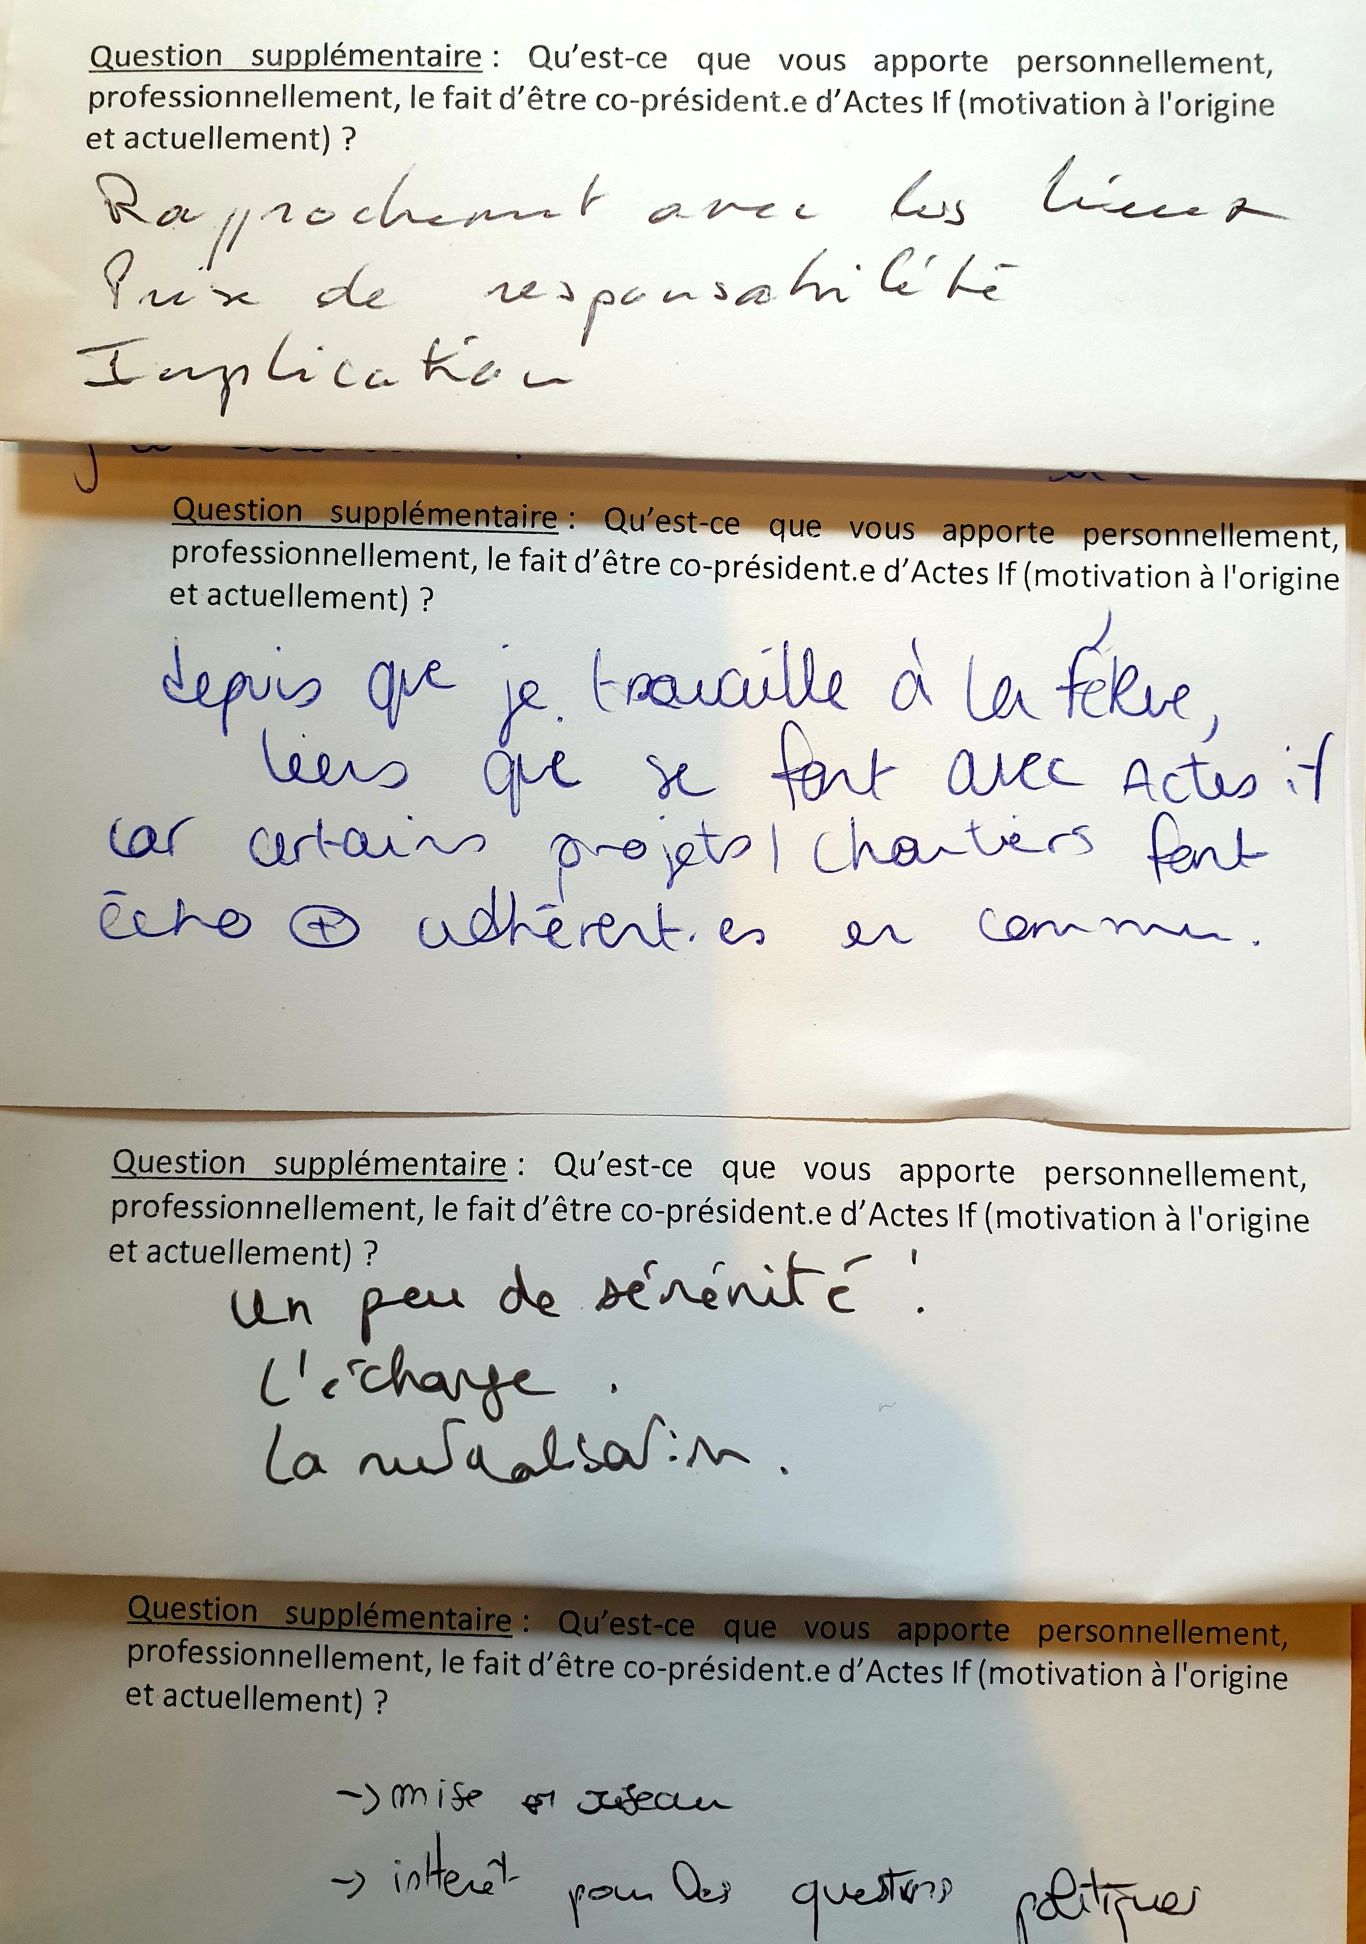 Question supplémentaire : Qu'est-ce que vous apporte personnellement,
professionnellement, le fait d'être co-président.e d'Actes If (motivation à l'origine
et actuellement) ?
Rapprochement avec les lieux
Prise de responsabilité
Implication
Question supplémentaire : Qu'est-ce que vous apporte personnellement,
professionnellement, le fait d'être co-président.e d'Actes If (motivation à l'origine
et actuellement) ?
depuis que je travaille à la
liens que se font avec Actes if
car certains projets / chantiers font
écho ⊕ adhérent.es en commun.
Question supplémentaire : Qu'est-ce que vous apporte personnellement,
professionnellement, le fait d'être co-président.e d'Actes If (motivation à l'origine
et actuellement) ?
Un peu de sérénité !
L'échange.
La mutualisation.
Question supplémentaire : Qu'est-ce que vous apporte personnellement,
professionnellement, le fait d'être co-président.e d'Actes If (motivation à l'origine
et actuellement) ?
→ mise en réseau
→ intterêt pour les questions politiques